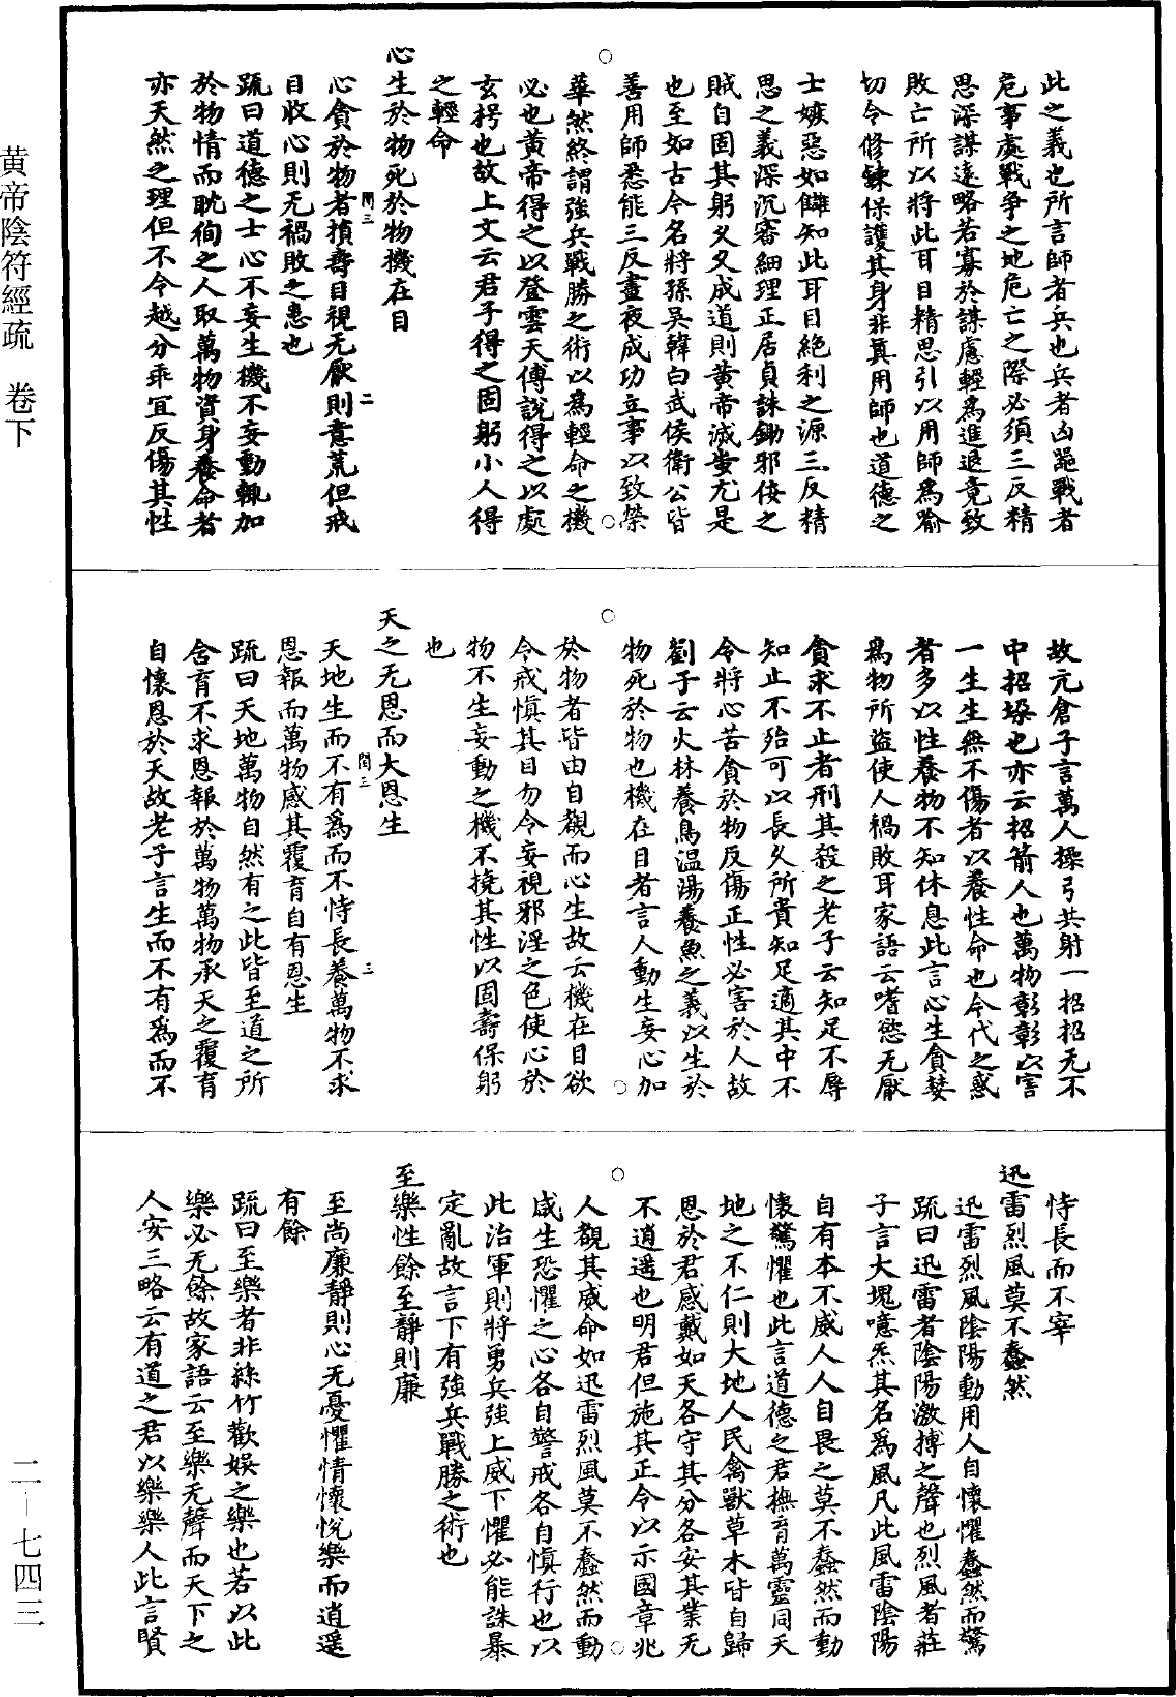 黃帝陰符經疏　卷下
二—七四三
此之義也所言師者兵也兵者凶器戰者
危事處戰爭之地危亡之際必須三反精
思深謀遠略若寡於謀慮輕為進退竟致
敗亡所以將此耳目精思引以用師為喻
切令修鍊保護其身非真用師也道德之
士嫉惡如讎知此耳目絕利之源三反精
思之義深沉審細理正居貞誅鋤邪佞之
賊自固其躬久久成道則黃帝滅蚩尤是
也至如古今名將孫吳韓白武侯衛公皆
善用師悉能三反晝夜成功立事以致榮
華然終謂強兵戰勝之術以為輕命之機
必也黃帝得之以登雲天傅說得之以處
玄枵也故上文云君子得之固躬小人得
之輕命
心生於物死於物機在目
心貪於物者損壽目視无厭則意荒但戒
目收心則无禍敗之患也
疏曰道德之士心不妄生機不妄動輒加
於物情而耽徇之人取萬物資身養命者
亦天然之理但不令越分乖宜反傷其性
閏三
二
故亢倉子言萬人操弓共射一招招无不
中招垛也亦云招箭人也萬物彰彰以害
一生生無不傷者以養性命也今代之惑
者多以性養物不知休息此言心生貪婪
為物所盜使人禍敗耳家語云嗜慾无厭
貪求不止者刑其殺之老子云知足不辱
知止不殆可以長久所貴知足適其中不
令將心苦貪於物反傷正性必害於人故
劉子云火林養鳥溫湯養魚之義以生於
物死於物也機在目者言人動生妄心加
於物者皆由自觀而心生故云機在目欲
令戒慎其目勿令妄視邪淫之色使心於
物不生妄動之機不撓其性以固壽保躬
也
天之无恩而大恩生
天地生而不有為而不恃長養萬物不求
恩報而萬物感其覆育自有恩生
疏曰天地萬物自然有之此皆至道之所
含育不求恩報於萬物萬物承天之覆育
自懷恩於天故老子言生而不有為而不
閏三
三
恃長而不宰
迅雷烈風莫不蠢然
迅雷烈風陰陽動用人自懷懼蠢然而驚
疏曰迅雷者陰陽激搏之聲也烈風者莊
子言大塊噫炁其名為風凡此風雷陰陽
自有本不威人人自畏之莫不蠢然而動
懷驚懼也此言道德之君撫育萬靈同天
地之不仁則大地人民禽獸草木皆自歸
恩於君感戴如天各守其分各安其業无
不逍遙也明君但施其正令以示國章兆
人觀其威命如迅雷烈風莫不蠢然而動
咸生恐懼之心各自警戒各自慎行也以
此治軍則將勇兵強上威下懼必能誅暴
定亂故言下有強兵戰勝之術也
至樂性餘至靜則廉
至尚廉靜則心无憂懼情懷悅樂而逍遙
有餘
疏曰至樂者非絲竹歡娛之樂也若以此
樂必无餘故家語云至樂无聲而天下之
人安三略云有道之君以樂樂人此言賢